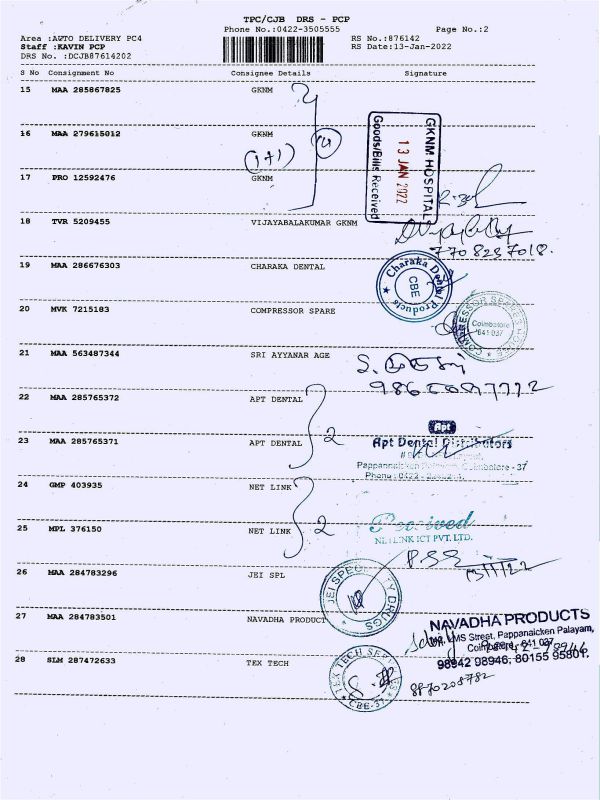 TPC/CJB DRS - PCP
Phone No.:0422-3505555
Page No.:2
Area :AUTO DELIVERY PC4
RS No.:876142
Staff :KAVIN PCP
RS Date:13-Jan-2022
DRS No. :DCJB87614202
S No Consignment No Consignee Details Signature
15 MAA 285867825 GKNM
16 MAA 279615012 GKNM
(1+1)
GKNM HOSPITAL
13 JAN 2022
Goods/Bills Received
17 PRO 12592476 GKNM
18 TVR 5209455 VIJAYABALAKUMAR GKNM
7708237018.
19 MAA 286676303 CHARAKA DENTAL
Charaka Dental Products
CBE
20 MVK 7215183 COMPRESSOR SPARE
COMPRESSOR SPARES
Coimbatore
641 037
21 MAA 563487344 SRI AYYANAR AGE
22 MAA 285765372 APT DENTAL
2
Apt
23 MAA 285765371 APT DENTAL
Apt Dental Distributors
Pappanaicken Coimbatore - 37
Phone : 0422 -
24 GMP 403935 NET LINK
2
Received
25 MPL 376150 NET LINK
NETLINK ICT PVT. LTD.
26 MAA 284783296 JEI SPL
JEI SPECIALITY DRUGS
27 MAA 284783501 NAVADHA PRODUCT
NAVADHA PRODUCTS
KMS Street, Pappanaicken Palayam,
Coimbatore - 641 037
98942 98946, 80155 95801.
28 SLM 287472633 TEX TECH
TEX TECH
CBE-37
8870208782